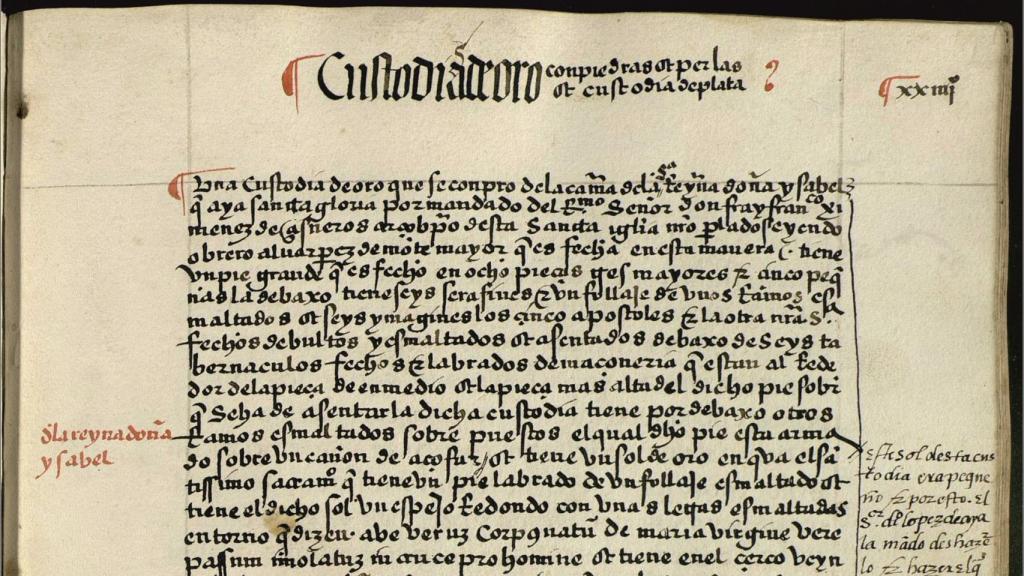 Custodia de oro con piedras et perlas
et custodia de plata
xxiiij
Una Custodia de oro que se conpro de la cam̃a de la s.ª Reyña doña ysabel
q̃ aya sancta gloria por mandado del R.mo Señor don fray fran.co xi
menez de çisñeros arçobpo desta Sancta iglia nr̃o plado seyendo
obrero aluar perez de mõte mayor q̃ es fecha en esta manera. tiene
vn pie grande q̃ es fecho en ocho pieças seys mayores & cinco peq̃
ñas la debaxo tiene seys serafines & vn follaje de vnos Ramos es
maltados et seys ymagines los çinco apostoles & la otra nr̃a S.ª
fechos de bultos y esmaltados et asentados debaxo de Seys ta
bernaculos fechos & labrados de maconeria q̃ estan al Rede
dor de la pieça de en medio et la pieça mas alta del dicho pie sobr̃
q̃ Se ha de asentar la dicha custodia tiene por debaxo otros
Ramos esmaltados sobre puestos el qual dho pie esta arma
do sobre vn cañon de açofar et tiene vn sol de oro en q̃ va el sã
tissimo sacram̃o q̃ tiene vn pie labrado de vn follaje esmaltado et
tiene el dicho sol vn espejo Redondo con vnas letras esmaltadas
en torno q̃ dizen. abe veruz Corpus natũ de maria virgine vere
passum immolatuz in cruce pro homine et tiene en el çerco veyn
dla reyna doña
ysabel
este sol desta cus
todia era peque
ño & por esto. el
S.or dº lopez de aya
la mãdo deshazer
lo & hazer el q̃